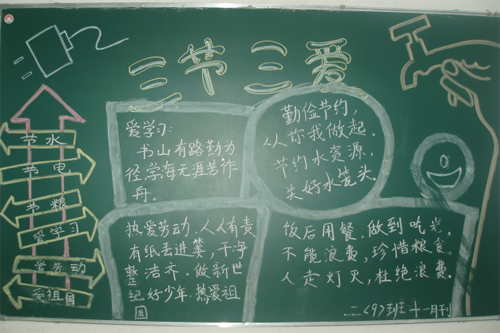 三节三爱
节水
节电
节粮
爱学习
爱劳动
爱祖国
爱学习:
书山有路勤为
径学海无涯苦作
舟.
勤俭节约,
从你我做起.
节约水资源,
关好水笼头.
热爱劳动,人人有责
有纸丢进篓,干净
整洁齐,做新世
纪好少年.热爱祖
国
饭后用餐,做到吃光.
不能浪费,珍惜粮食.
人走灯灭,杜绝浪费.
二〈9〉班十一月刊